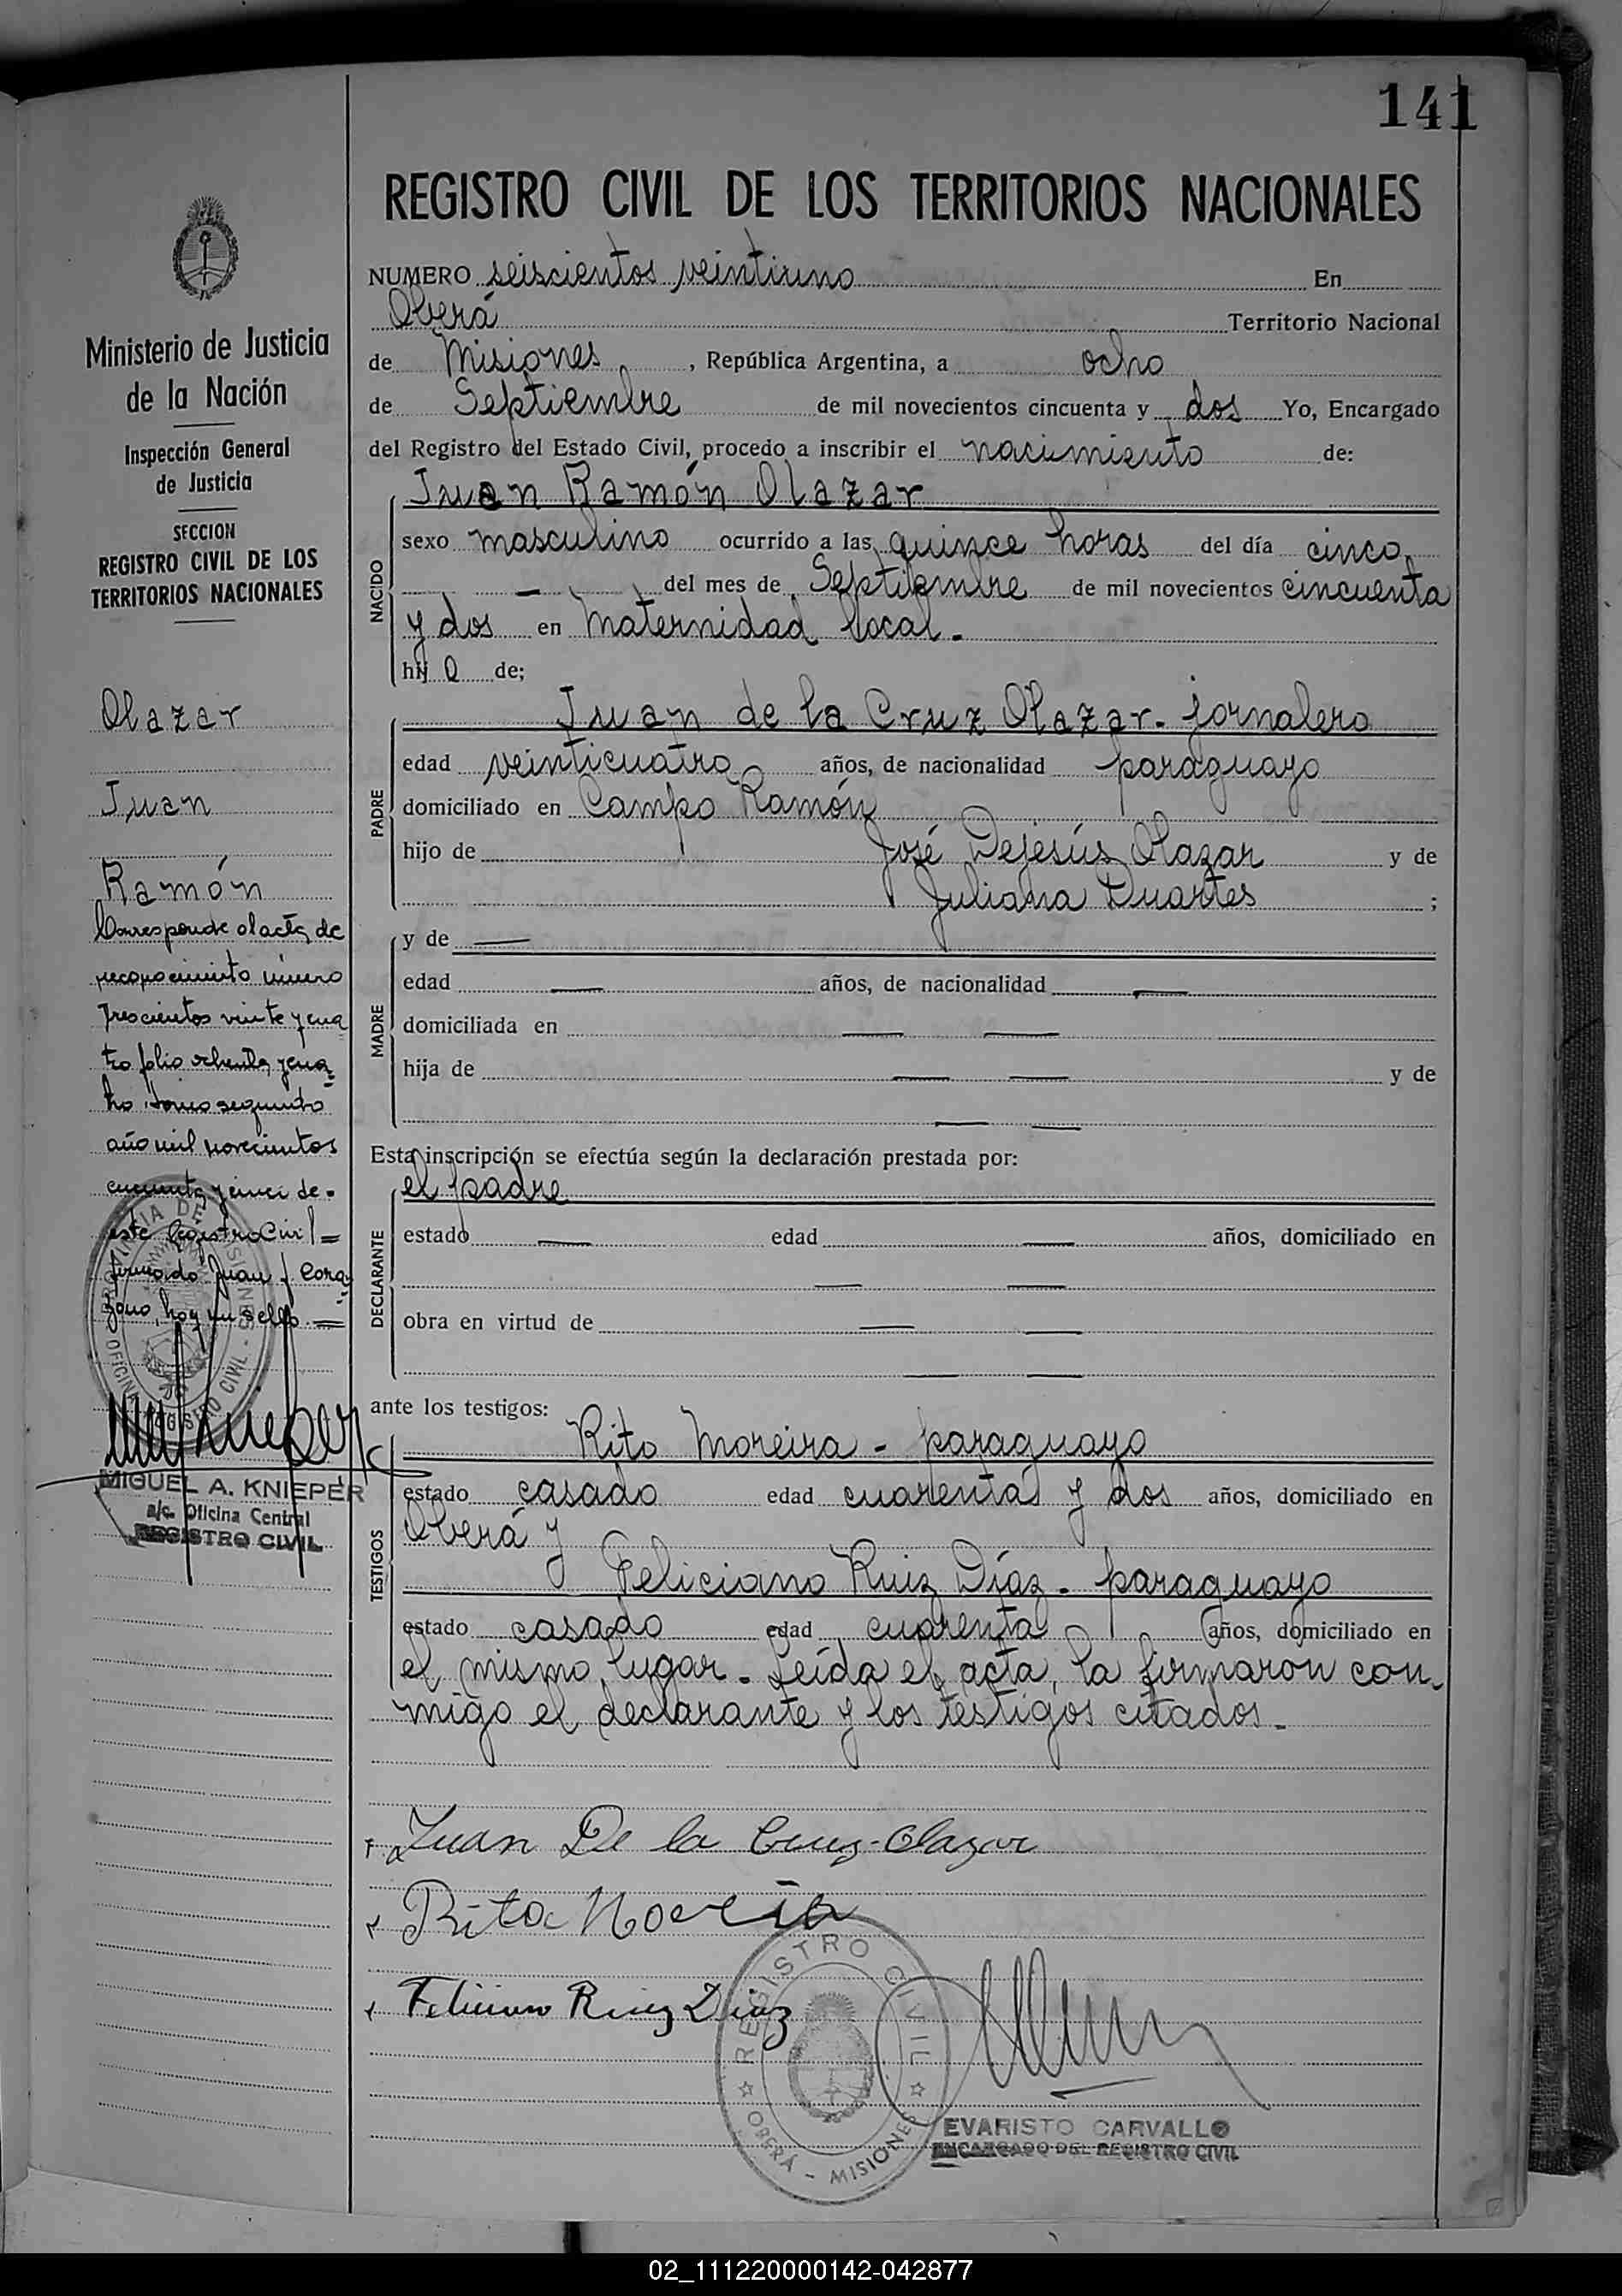 141
REGISTRO CIVIL DE LOS TERRITORIOS NACIONALES
NUMERO seiscientos veintiuno En
Oberá Territorio Nacional
de Misiones, República Argentina, a ocho
de Septiembre de mil novecientos cincuenta y dos Yo, Encargado
del Registro del Estado Civil, procedo a inscribir el nacimiento de:
NACIDO
Juan Ramón Olazar
sexo masculino ocurrido a las quince horas del día cinco
— del mes de Septiembre de mil novecientos cincuenta
y dos en Maternidad local.
hijo de;
PADRE
Juan de la Cruz Olazar - jornalero
edad veinticuatro años, de nacionalidad paraguayo
domiciliado en Campo Ramón
hijo de José Dejesús Olazar y de
Juliana Duartes ;
MADRE
y de —
edad — años, de nacionalidad —
domiciliada en — —
hija de — — y de
— —
Esta inscripción se efectúa según la declaración prestada por:
DECLARANTE
el padre
estado — edad — años, domiciliado en
— —
obra en virtud de — —
— —
ante los testigos:
TESTIGOS
Rito Moreira - paraguayo
estado casado edad cuarenta y dos años, domiciliado en
Oberá y
Feliciano Ruiz Díaz - paraguayo
estado casado edad cuarenta años, domiciliado en
el mismo lugar. Leída el acta, la firmaron con-
migo el declarante y los testigos citados.
Juan De la Cruz Olazar
Rito
Ruiz Diaz
REGISTRO CIVIL
OBERÁ - MISIONES
EVARISTO CARVALLO
ENCARGADO DEL REGISTRO CIVIL
Ministerio de Justicia
de la Nación
Inspección General
de Justicia
SECCION
REGISTRO CIVIL DE LOS
TERRITORIOS NACIONALES
Olazar
Juan
Ramón
Corresponde al acta de
reconocimiento número
trescientos veinte y cua
tro folio ochenta y cua=
tro, tomo segundo
año mil novecientos
cincuenta y cinco de
este Registro Civil =
firmado Juan
hoy
OFICINA REGISTRO CIVIL
MIGUEL A. KNIEPER
a/c. Oficina Central
REGISTRO CIVIL
02_111220000142-042877